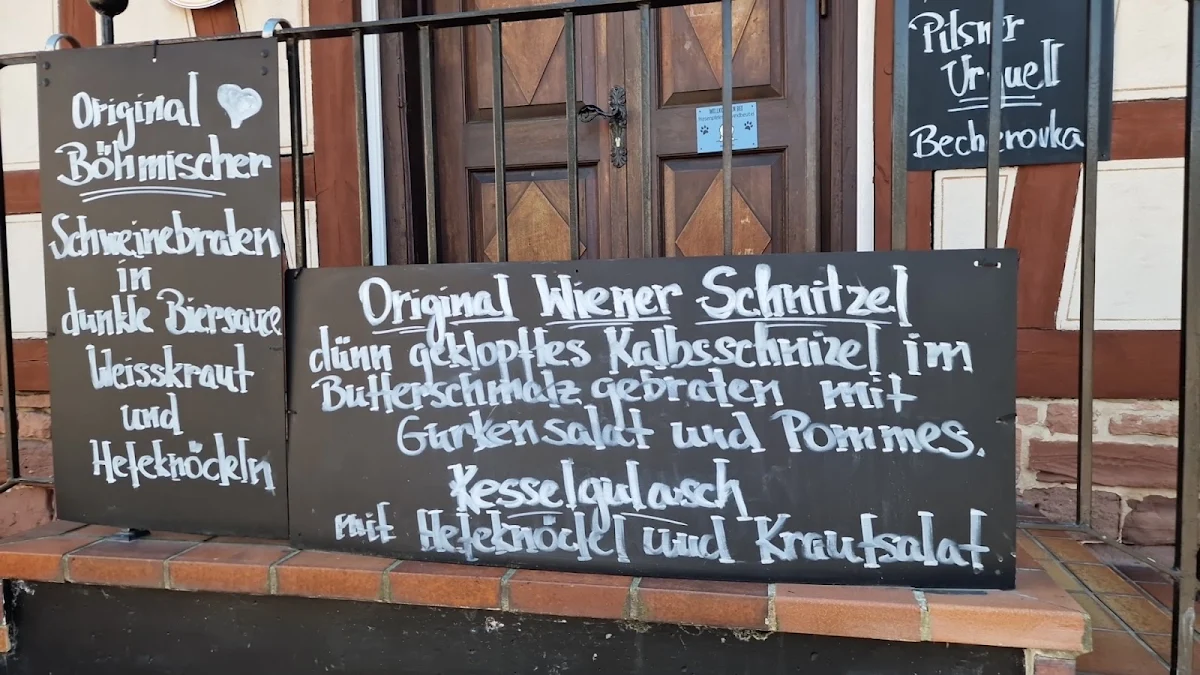 Original
Böhmischer
Schweinebraten
in
dunkle Biersauce
Weisskraut
und
Hefeknöckeln
Original Wiener Schnitzel
dünn geklopftes Kalbsschnizel im
Butterschmalz gebraten mit
Gurkensalat und Pommes.
Kesselgulasch
mit Hefeknödel und Krautsalat
Pilsner
Urquell
Becherovka